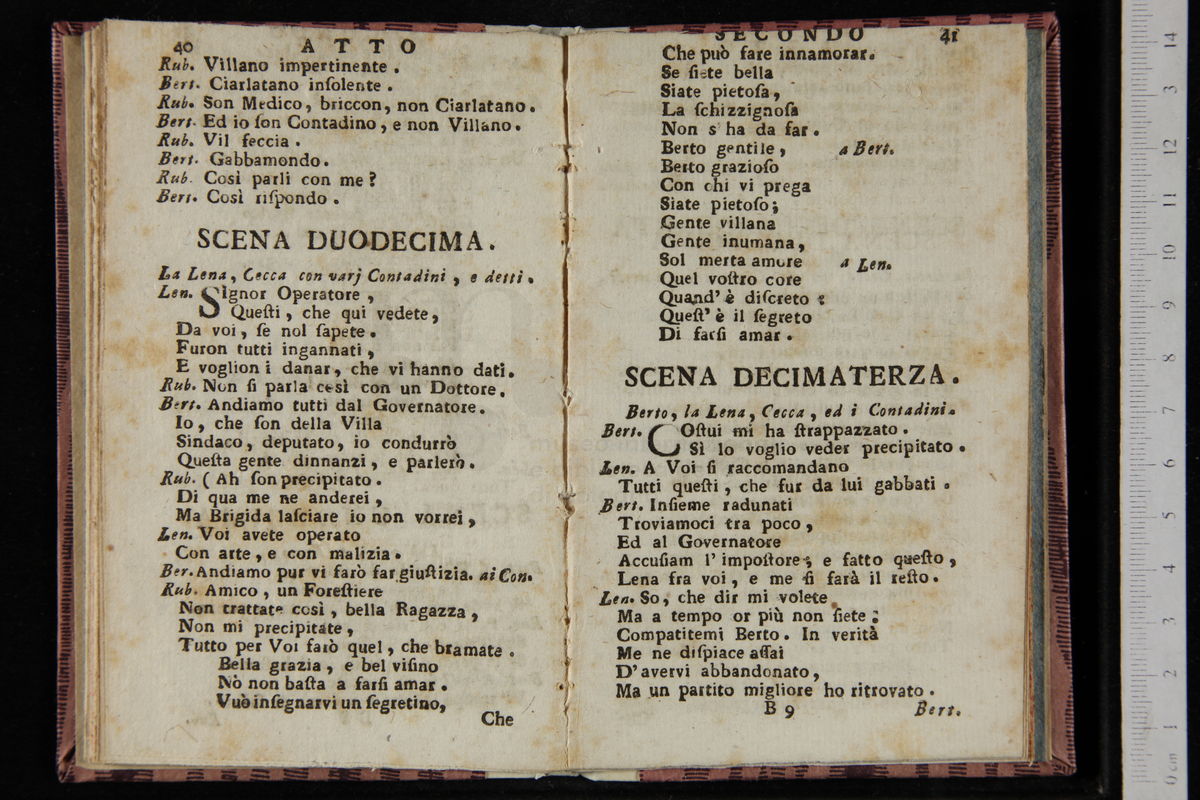 40 ATTO
Rub. Villano impertinente .
Bert. Ciarlatano inſolente .
Rub. Son Medico, briccon, non Ciarlatano.
Bert. Ed io ſon Contadino, e non Villano.
Rub. Vil feccia .
Bert. Gabbamondo.
Rub. Così parli con me?
Bert. Così riſpondo .
SCENA DUODECIMA.
La Lena, Cecca con varj Contadini , e detti .
Len. SIgnor Operatore ,
Queſti , che qui vedete,
Da voi , ſe nol ſapete .
Furon tutti ingannati ,
E voglion i danar, che vi hanno dati.
Rub. Non ſi parla così con un Dottore.
Bert. Andiamo tutti dal Governatore.
Io, che ſon della Villa
Sindaco, deputato, io condurrò
Queſta gente dinnanzi , e parlerò .
Rub. ( Ah ſon precipitato .
Di qua me ne anderei ,
Ma Brigida laſciare io non vorrei ,
Len. Voi avete operato
Con arte, e con malizia .
Ber. Andiamo pur vi farò far giuſtizia. ai Con.
Rub. Amico , un Foreſtiere
Non trattate così , bella Ragazza ,
Non mi precipitate ,
Tutto per Voi farò quel , che bramate .
Bella grazia , e bel viſino
Nò non baſta a farſi amar .
Vuò inſegnarvi un ſegretino,
Che
SECONDO 41
Che può fare innamorar.
Se ſiete bella
Siate pietoſa ,
La ſchizzignoſa
Non s'ha da far .
Berto gentile , a Bert.
Berto grazioſo
Con chi vi prega
Siate pietoſo ;
Gente villana
Gente inumana ,
Sol merta amore a Len.
Quel voſtro core
Quand' è diſcreto :
Queſt' è il ſegreto
Di farſi amar .
SCENA DECIMATERZA.
Berto, la Lena, Cecca , ed i Contadini.
Bert. COſtui mi ha ſtrappazzato .
Sì lo voglio veder precipitato .
Len. A Voi ſi raccomandano
Tutti queſti , che fur da lui gabbati .
Bert. Inſieme radunati
Troviamoci tra poco ,
Ed al Governatore
Accuſiam l' impoſtore ; e fatto queſto ,
Lena fra voi , e me ſi farà il reſto.
Len. So, che dir mi volete
Ma a tempo or più non ſiete ;
Compatitemi Berto . In verità
Me ne diſpiace aſſai
D'avervi abbandonato ,
Ma un partito migliore ho ritrovato .
B 9 Bert.
14
3
12
11
10
9
8
7
6
5
4
3
2
1
0 cm